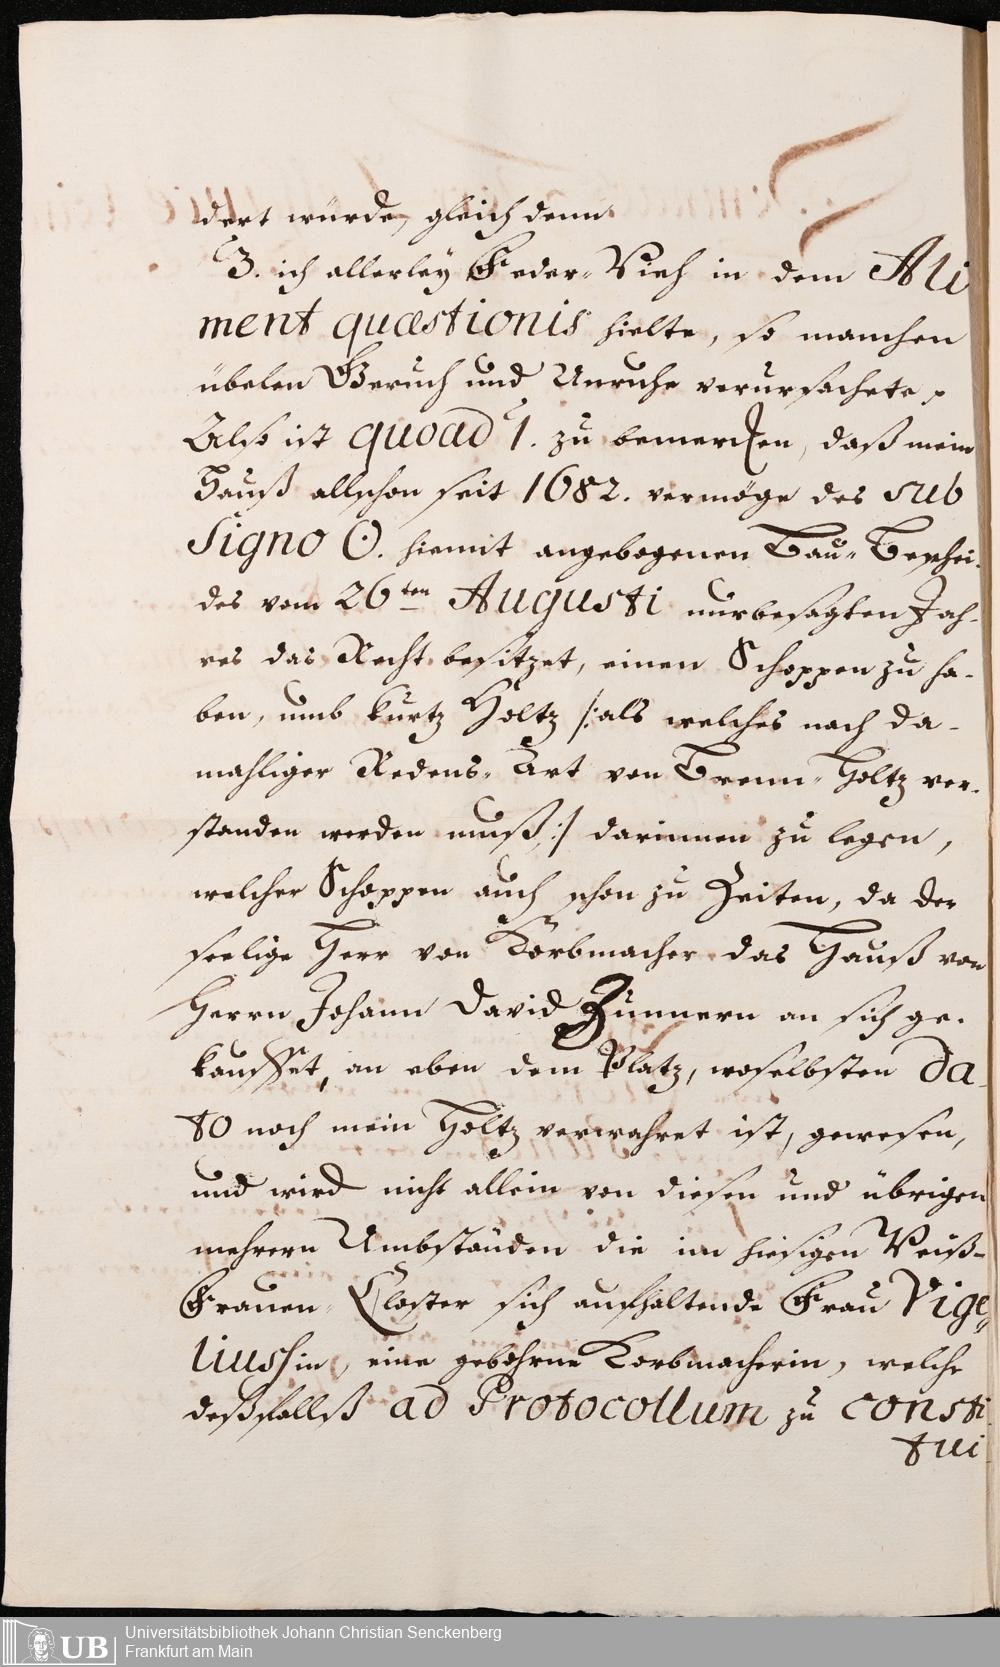 dert würde, gleich denn
3. ich allerley Feder-Vieh in dem Ali
ment quæstionis hielte, so manchen
übelen Geruch und Unruhe verursachete,
Also ist quoad 1. zu bemercken, daß mein
Hauß allschon seit 1682. vermöge des sub
signo ☉. hiemit angebogenen Bau-Beschei-
des vom 26ten Augusti nurbesagten Jah-
res das Recht besitzet, einen Schoppen zu ha-
ben, umb kurtz Holtz /: als welches nach da-
mahliger Redens-Art von Brenn-Holtz ver-
standen werden muß, :/ darinnen zu legen,
welcher Schoppen auch schon zu Zeiten, da der
seelige Herr von Korbmacher das Hauß von
Herrn Johann David Zunnern an sich ge-
kauffet, an eben dem Platz, woselbsten da-
to noch mein Holtz verwahret ist, gewesen,
und wird nicht allein von diesen und übrigen
mehrern Umbständen die im hiesigen Weiß-
Frauen-Closter sich aufhaltende Frau Vige-
liussin, eine gebohrne Korbmacherin, welche
deßfallß ad Protocollum zu consti
tui
UB
Universitätsbibliothek Johann Christian Senckenberg
Frankfurt am Main